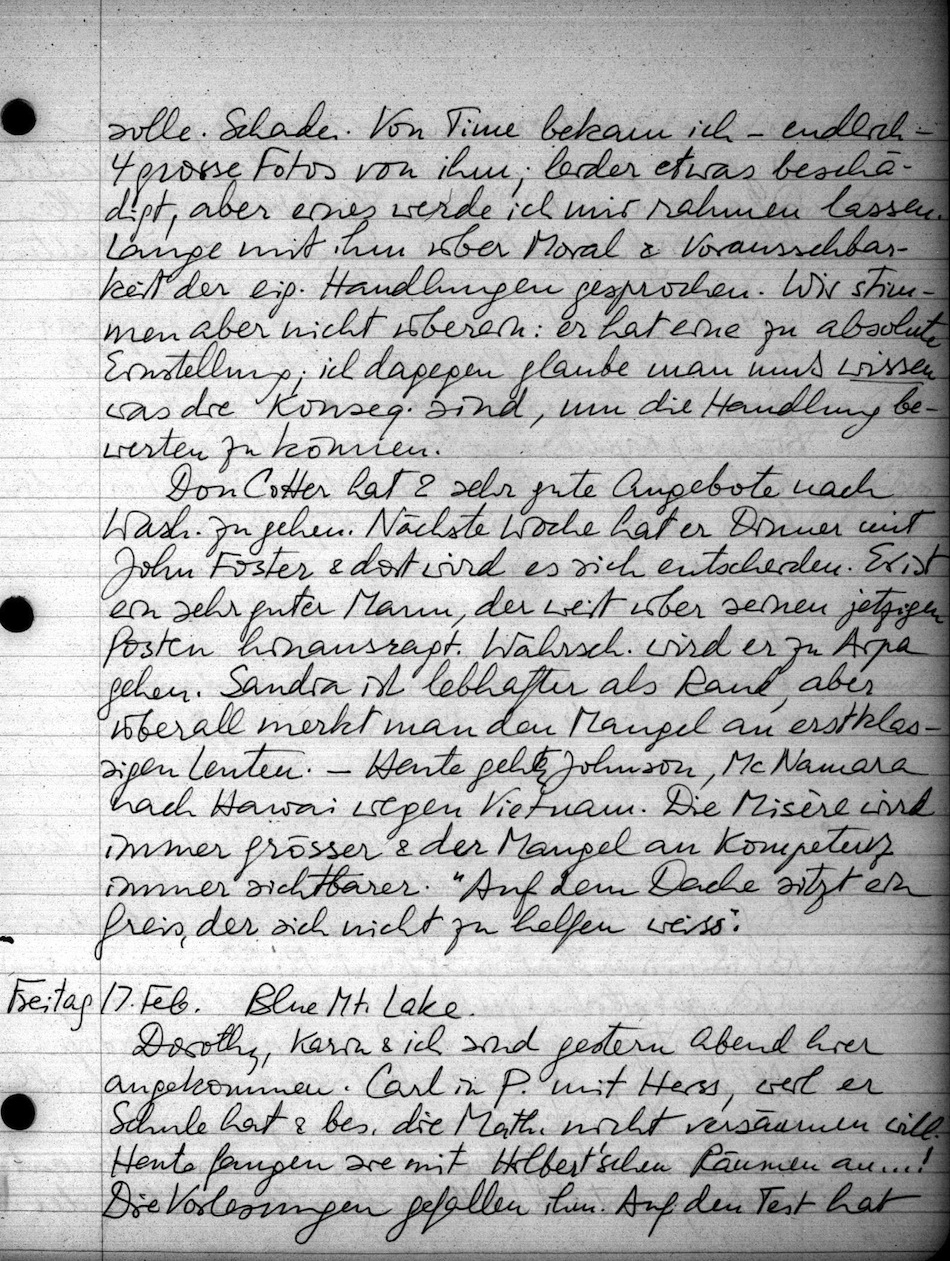 solle. Schade. Von Time bekam ich – endlich –
4 grosse Fotos von ihm; leider etwas beschä-
digt, aber eines werde ich mir rahmen lassen.
Lange mit ihm über Moral & Voraussehbar-
keit der eig. Handlungen gesprochen. Wir stim-
men aber nicht überein: er hat eine zu absolute
Einstellung; ich dagegen glaube man muß wissen
was die Konseq. sind, um die Handlung be-
werten zu können.
Don Cotter hat 2 sehr gute Angebote nach
Wash. zu gehen. Nächste Woche hat er Dinner mit
John Foster & dort wird es sich entscheiden. Er ist
ein sehr guter Mann, der weit über seinen jetzigen
Posten hinausragt. Wahrsch. wird er zu Arpa
gehen. Sandia ist lebhafter als Rand, aber
überall merkt man den Mangel an erstklas-
sigen Leuten. – Heute geht Johnson, McNamara
nach Hawai wegen Vietnam. Die Misère wird
immer grösser & der Mangel an Kompetenz
immer sichtbarer. "Auf dem Dache sitzt ein
Greis, der sich nicht zu helfen weiss".
Freitag 17. Feb. Blue Mt. Lake.
Dorothy, Karin & ich sind gestern Abend hier
angekommen. Carl in P. mit Herss, weil er
Schule hat & bes. die Math. nicht versäumen will.
Heute fangen sie mit Hilbert'schen Räumen an...!
Die Vorlesungen gefallen ihm. Auf den Test hat